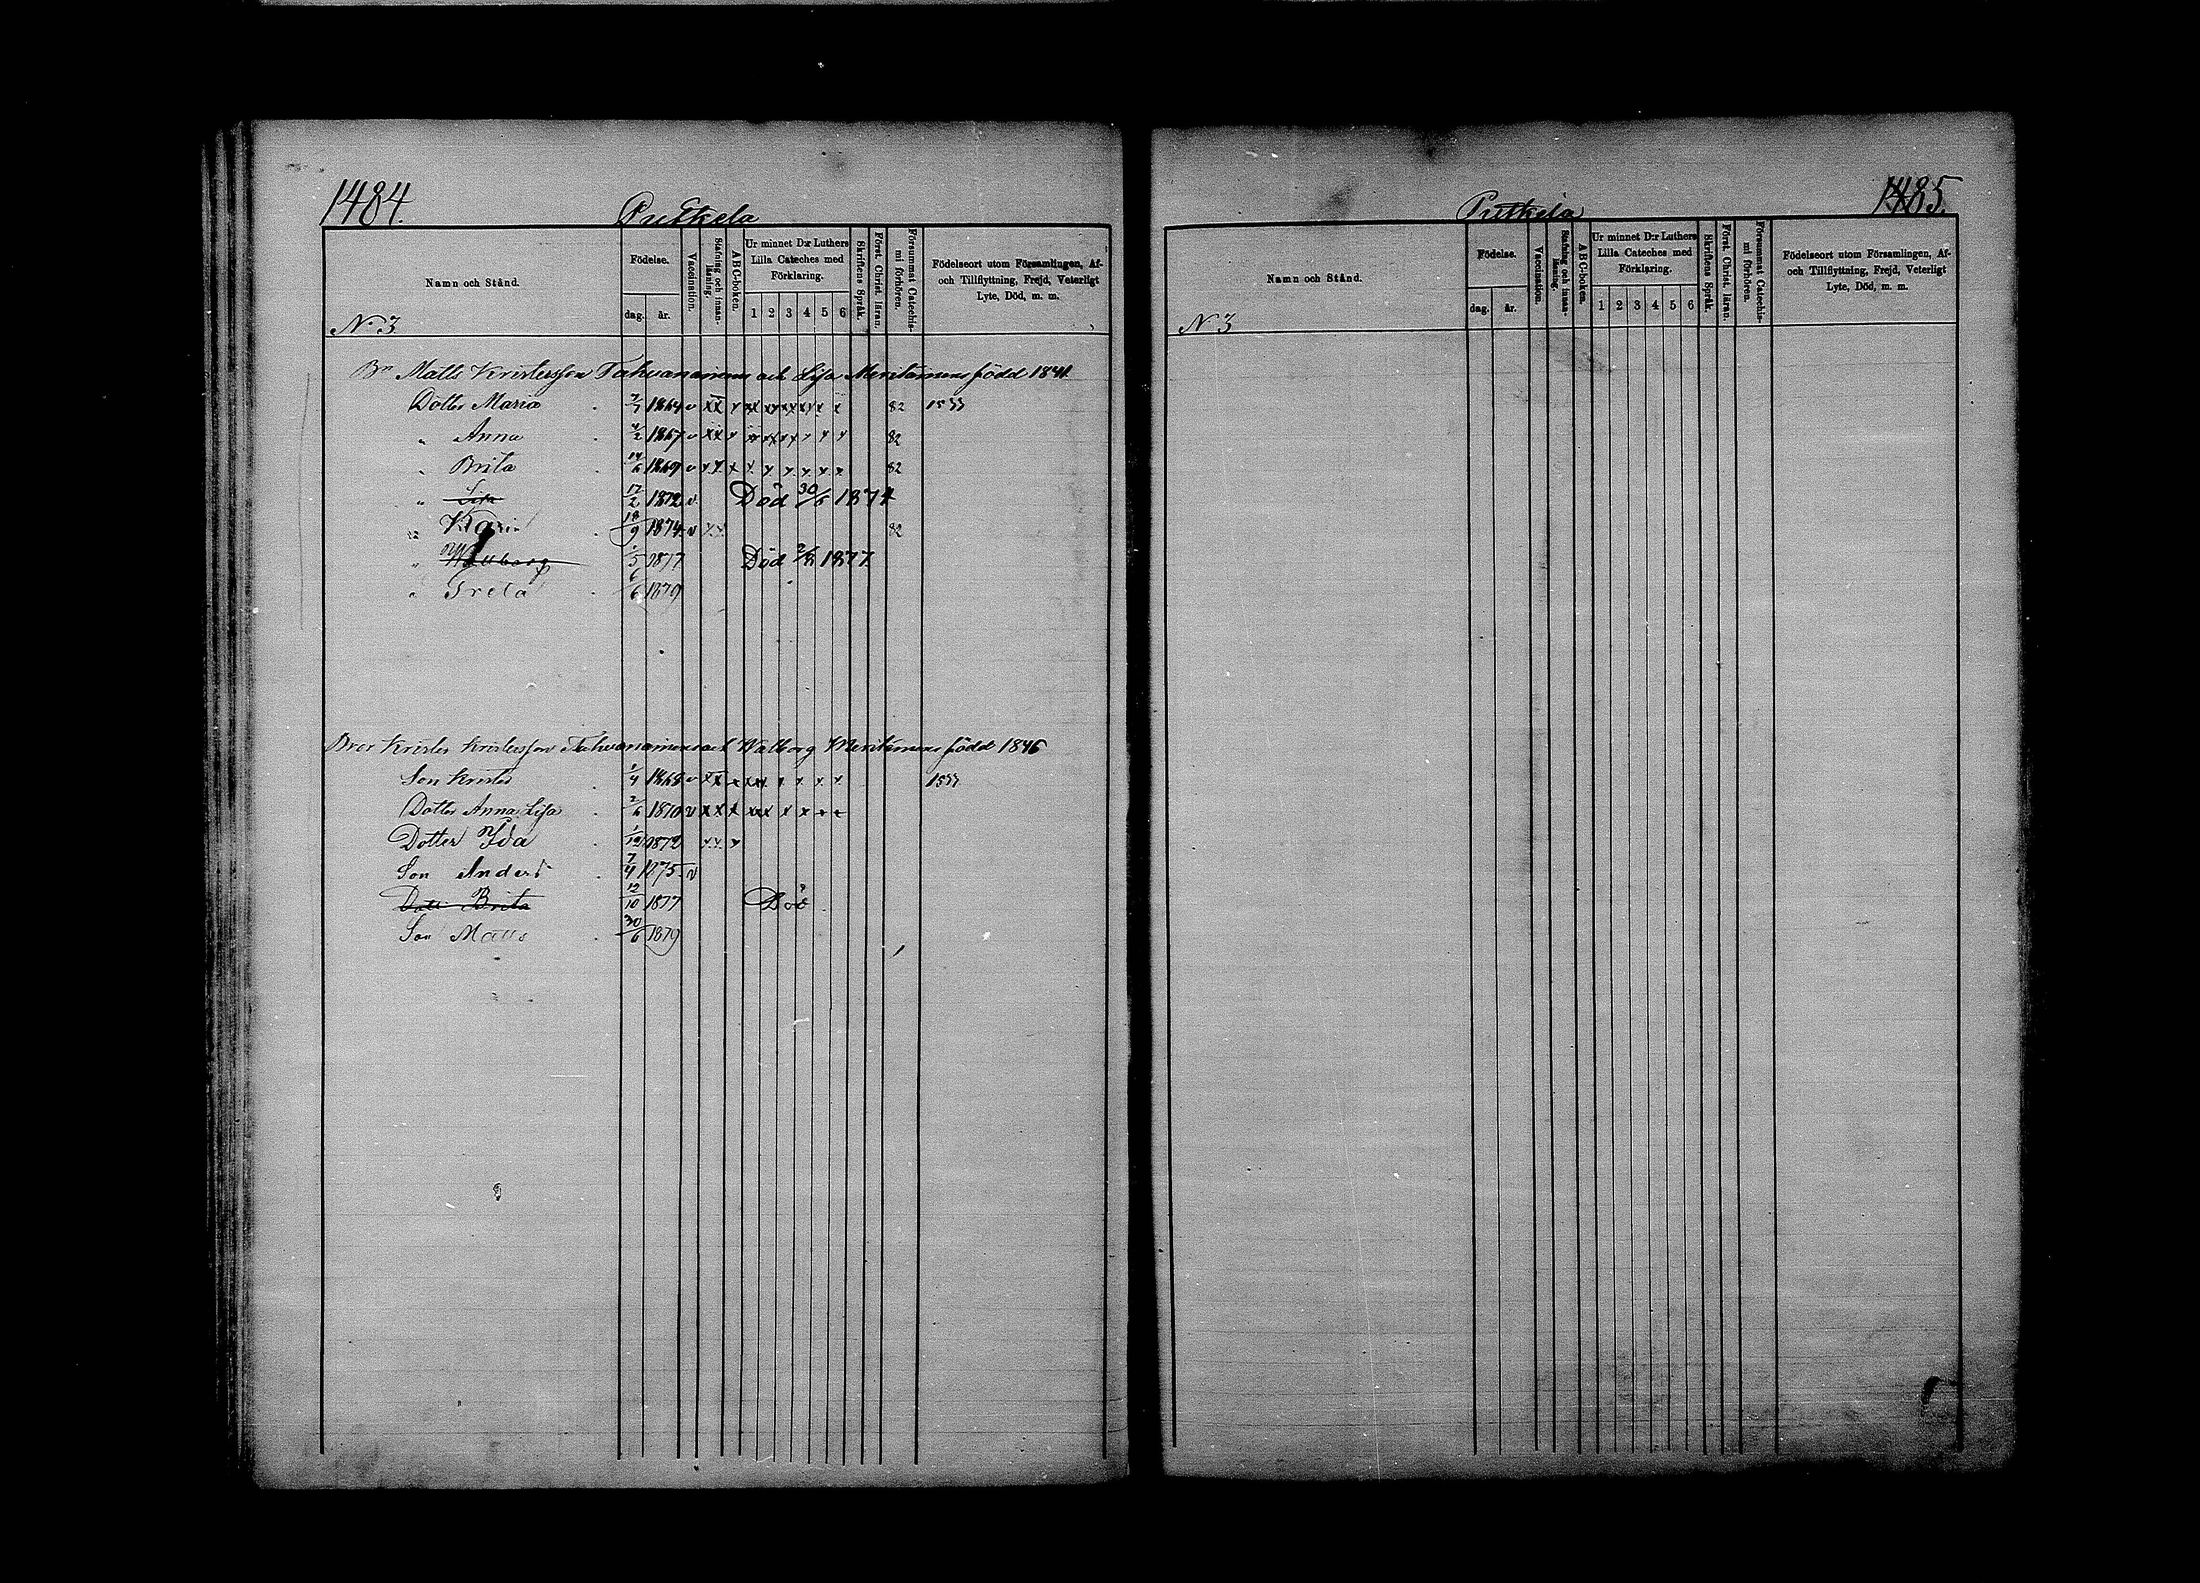 1484.
Putkela
Namn och Stånd.
Födelse.
dag. år.
Vaccination.
Stafning och innanläsning.
A B C-boken.
Ur minnet D:r Luthers Lilla Cateches med Förklaring.
1 2 3 4 5 6
Skriftens Språk.
Först. Christ. läran.
Försummat Catechismi förhören.
Födelseort utom Församlingen, Af- och Tillflyttning, Frejd, Veterligt Lyte, Död, m. m.
N:o 3
Bn Matts Kristersson Tahvanainens och Lisa Meritäinens född 1841
Dotter Maria 1864 v xx x xx xx xx xx x x 82 1533
" Anna 4/2 1867 v xx x xx xx xx x x x 82
" Brita 14/6 1869 v x x x x x x x x x 82
" Lisa 17/2 1872 v. Död 30/5 1874
" Karin 18/9 1874 v x x 82
" Wallborg 1/5 1877 Död 1877
" Greta 6/6 1879
Bror Krister Kristersson Tahvanainens och Walborg Meritäinens född 1846
Son Krister 1/4 1868 v xx x xx x x x x 1533
Dotter Anna Lisa 2/6 1870 v x x x xx x x x x
Dotter Ida 1/12 1872 x x x
Son Anders 7/4 1875 v
Dott Brita 12/10 1877 Död
Son Matts 30/6 1879
1485.
Putkela
Namn och Stånd.
Födelse.
dag. år.
Vaccination.
Stafning och innanläsning.
A B C-boken.
Ur minnet D:r Luthers Lilla Cateches med Förklaring.
1 2 3 4 5 6
Skriftens Språk.
Först. Christ. läran.
Försummat Catechismi förhören.
Födelseort utom Församlingen, Af- och Tillflyttning, Frejd, Veterligt Lyte, Död, m. m.
N 3